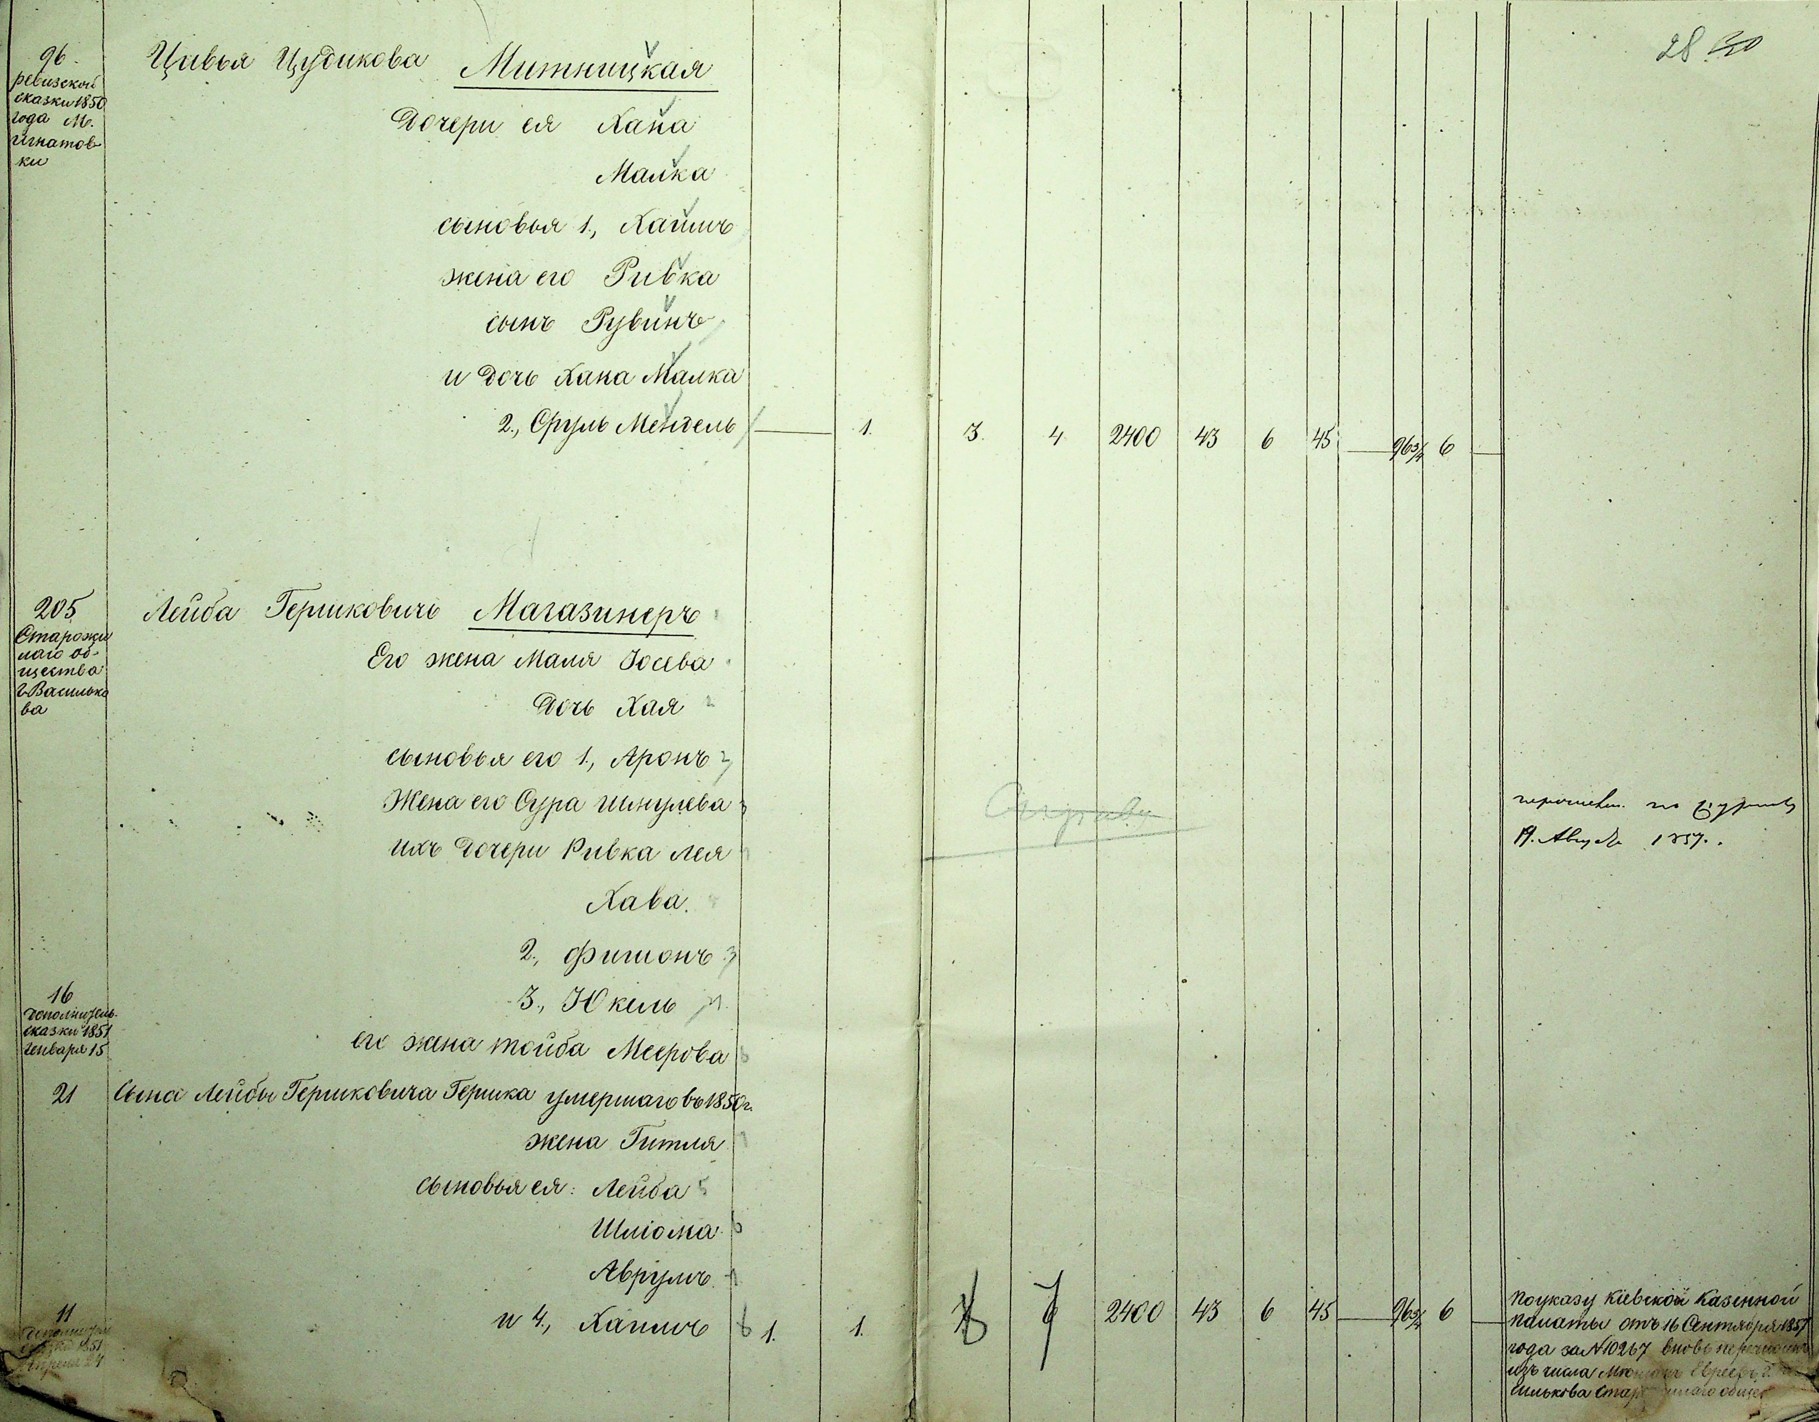 28
96
ревизской
сказки 1850
года М.
Игнатов-
ки
Цивья Цудикова Митницкая
Дочери ея Хана
Малка
сыновья 1., Хаимъ
жена его Ривка
сынъ Рувинъ
и дочь Хана Малка
2., Сруль Мендель — 1. 3. 4 2400 43 6 45 — 96 3/4 6 —
205
Старожи
лаго об-
щества
г. Василько
ва
Лейба Гершковичъ Магазинеръ
Его жена Маля Іосева
Дочь Хая
сыновья его 1., Аронъ
Жена его Сура Шмулева
ихъ дочери Ривка Лея
Хава.
2., Фишонъ
3., Юкель
16
дополнитель.
сказки 1851
Генваря 15
его жена Тойба Меерова
21 Сына Лейбы Гершковича Гершка умершаго въ 1850 г.
жена Гитля
сыновья ея: Лейба
Шліома
Аврумъ
11
сказки 1851
Апреля 24
и 4., Хаимъ 1. 1. 2400 43 6 45 — 96 3/4 6 —
по
19. Август 1857.
По указу Кіевской Казенной
палаты отъ 16 Сентября 1857
года за № 10267 вновь
изъ числа Евреевъ г. Ва
силькова